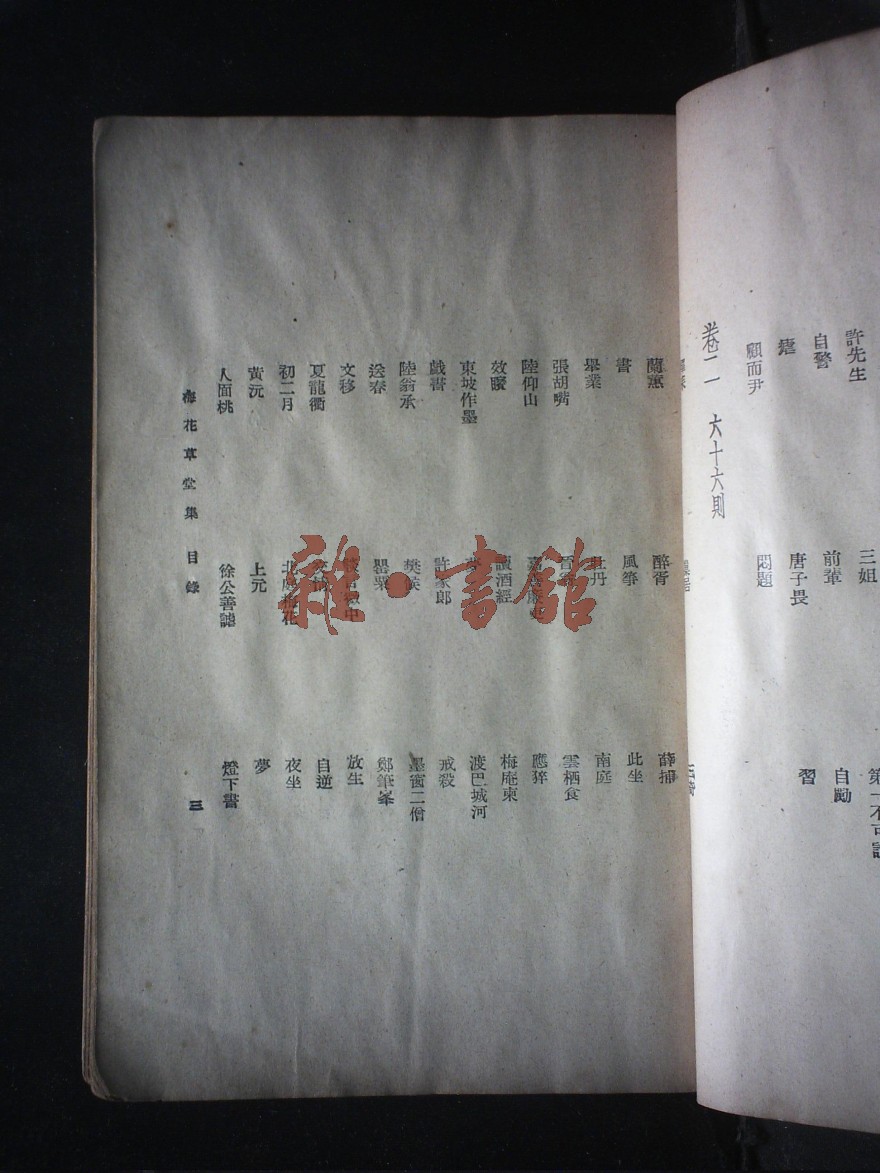 許先生
三姐
自警
前輩
自勵
瘧
唐子畏
習
顧而尹
悶題
卷二 六十六則
蘭薰
醉胥
薛捕
書
風箏
此坐
舉業
牡丹
南庭
張胡嘴
雲栖食
陸仰山
應猝
效顰
讀酒經
梅庵東
東坡作墨
渡巴城河
戲書
許家郎
戒殺
陸翁承
樊侯
墨窗二僧
送春
罌粟
鄭筆峯
文移
放生
夏龍衢
自逆
初二月
北庭梅花
夜坐
黃沅
上元
夢
人面桃
徐公善謔
燈下書
梅花草堂集 目錄
三
雜·書館